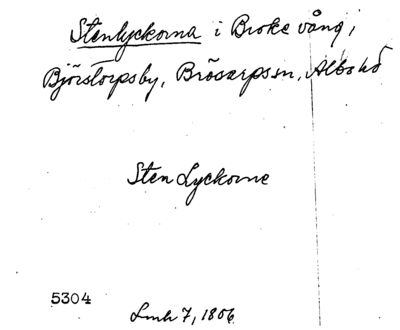 Stenlyckorna i Broke vång,
Björstorps by, Brösarps sn, Albo hd
Sten Lyckorne
5304
Lmh 7, 1806